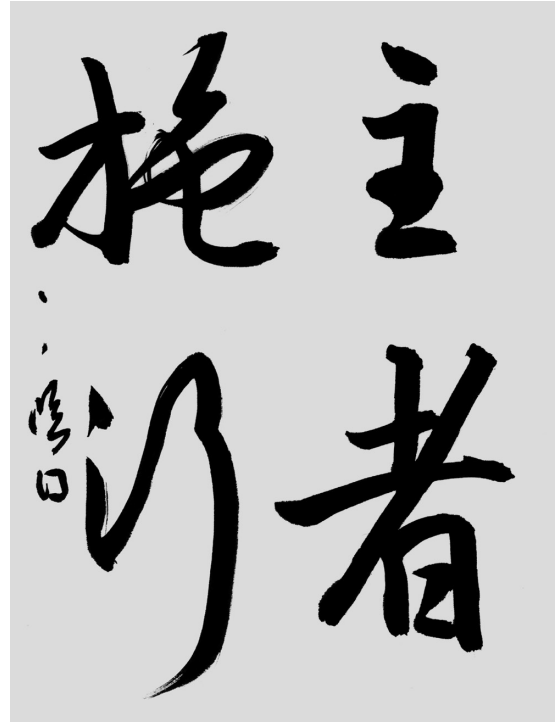 主者
施行